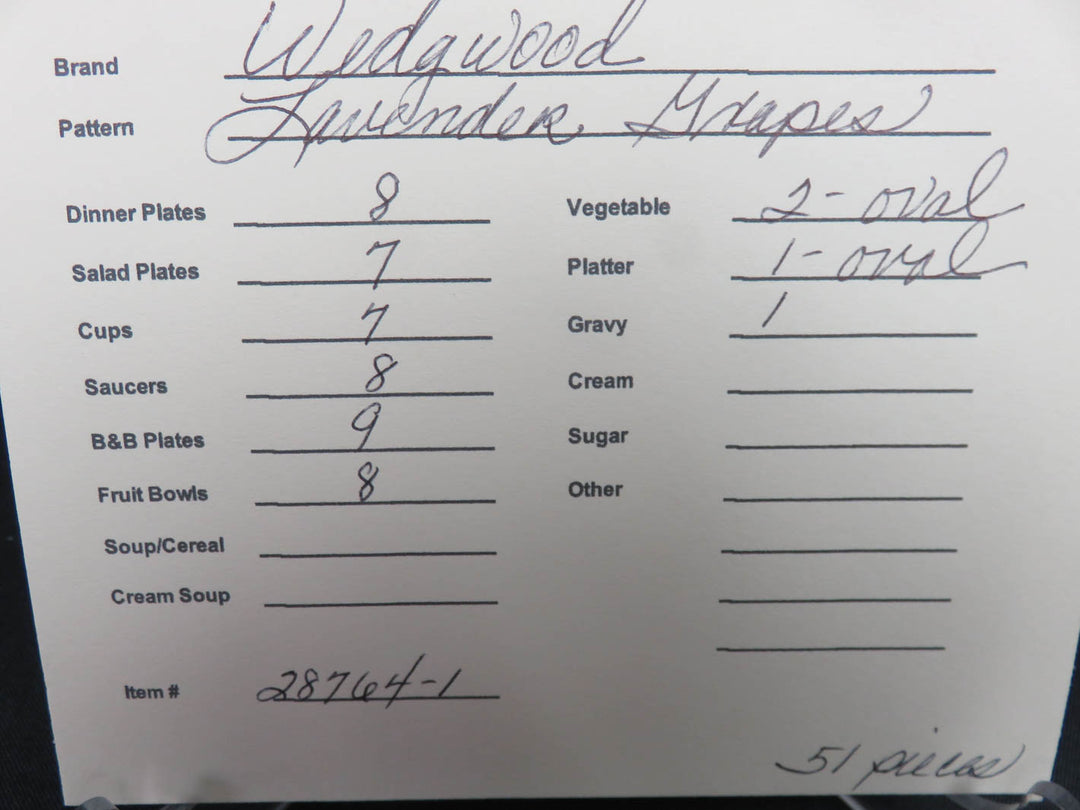 Brand Wedgwood
Pattern Lavender Grapes
Dinner Plates 8 Vegetable 2- oval
Salad Plates 7 Platter 1- oval
Cups 7 Gravy 1
Saucers 8 Cream
B&B Plates 9 Sugar
Fruit Bowls 8 Other
Soup/Cereal
Cream Soup
Item # 28764-1
51 pieces